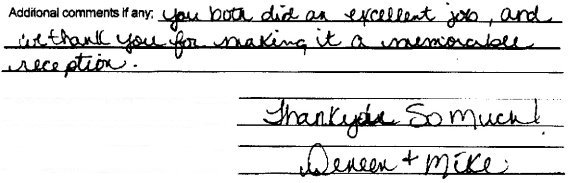 Additional comments if any: you both did an excellent job, and
we thank you for making it a memorable
reception.
Thank you So Much!
Deneen + Mike